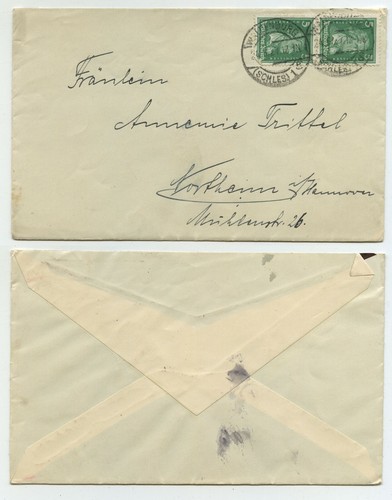 (SCHLES)
Fräulein
Annemie Trittel
Northeim i/Hannover
Mühlenstr. 26.